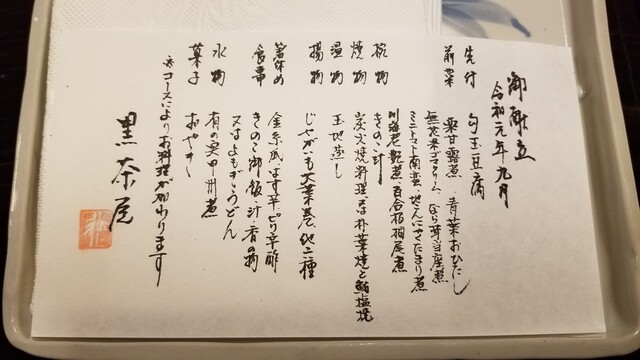 御献立
令和元年九月
先付 勾玉豆腐
前菜 栗甘露煮 青菜おひたし
無花果ゴマクリーム、なら茸当座煮
ミニトマト南蛮、地こんにゃくたまり煮
川海老艶煮、百合根相尾煮
椀物 きのこ汁
焼物 炭火焼料理 又は朴葉焼と鮎塩焼
温物 玉地蒸し
揚物 じゃがいも大葉巻、他二種
箸休め 金糸瓜、はす芋ピリ辛酢
食事 きのこ御飯・汁・香の物
又はよもぎうどん
水物 有の実甲州煮
菓子 おやき
※コースによりお料理が加わります
黒茶屋